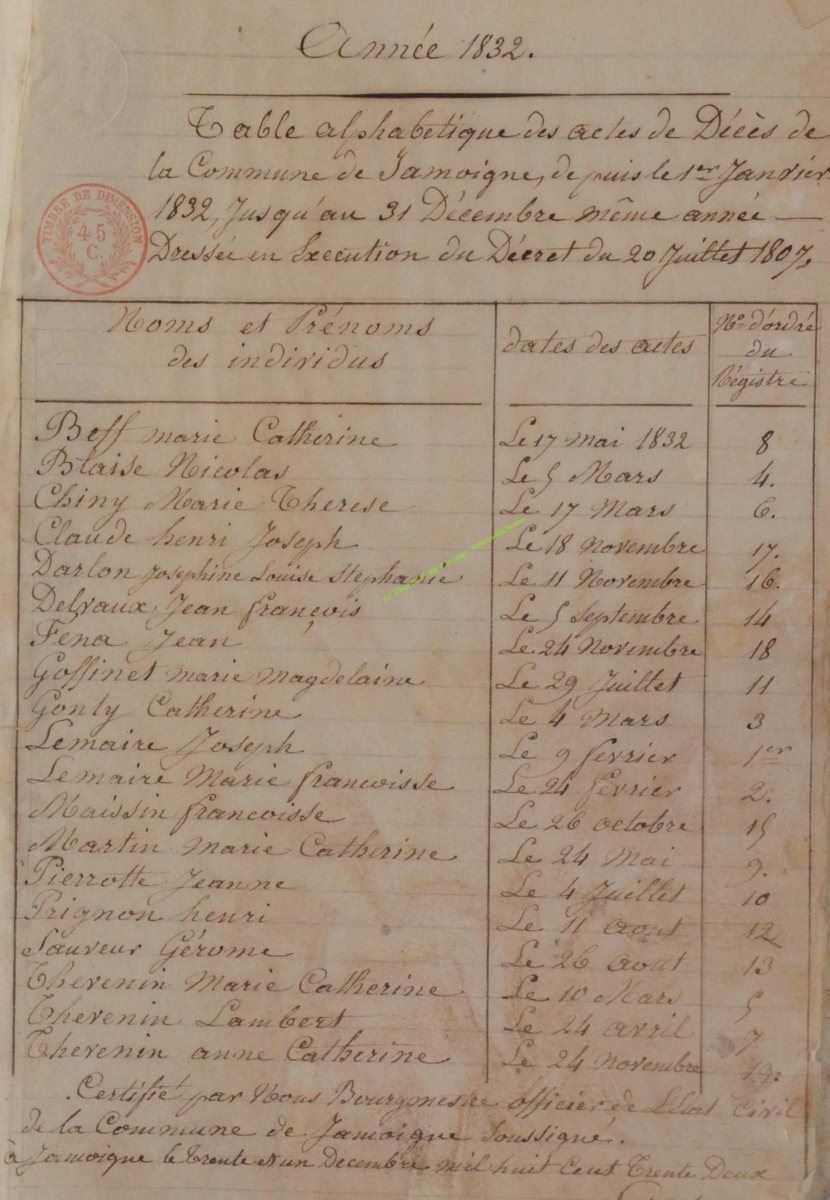 Année 1832.
Table alphabetique des actes de Décès de
la Commune de Jamoigne, depuis le 1er Janvier
1832, Jusqu'au 31 Décembre même année —
Dressée en Execution du Décret du 20 Juillet 1807,
TIMBRE DE DIMENSION
45
C.
Noms et Prénoms
des individus
dates des actes
No d'ordre
du
Régistre
Beff marie Catherine Le 17 mai 1832 8
Blaise Nicolas Le 5 Mars 4.
Chiny Marie Therese Le 17 Mars 6.
Claude henri Joseph Le 18 Novembre 17.
Darlon Josephine Louise Stephanie Le 11 Novembre 16.
Delvaux Jean françois Le 5 Septembre 14
Fena Jean Le 24 Novembre 18
Goffinet marie magdelaine Le 29 Juillet 11
Gonty Catherine Le 4 Mars 3
Lemaire Joseph Le 9 fevrier 1er
Lemaire Marie francoisse Le 24 fevrier 2.
Maissin francoisse Le 26 octobre 15
Martin marie Catherine Le 24 Mai 9.
Pierrotte Jeanne Le 4 Juillet 10
Prignon henri Le 11 aout 12
Sauveur Gérome Le 26 aout 13
Thevenin Marie Catherine Le 10 Mars 5
Thevenin Lambert Le 24 avril 7
Thevenin anne Catherine Le 24 Novembre 19.
Certifié par Nous Bourgmestre officier de L'Etat Civil
de la Commune de Jamoigne Soussigné.
à Jamoigne le trente et un Decembre mil huit Cent Trente Deux